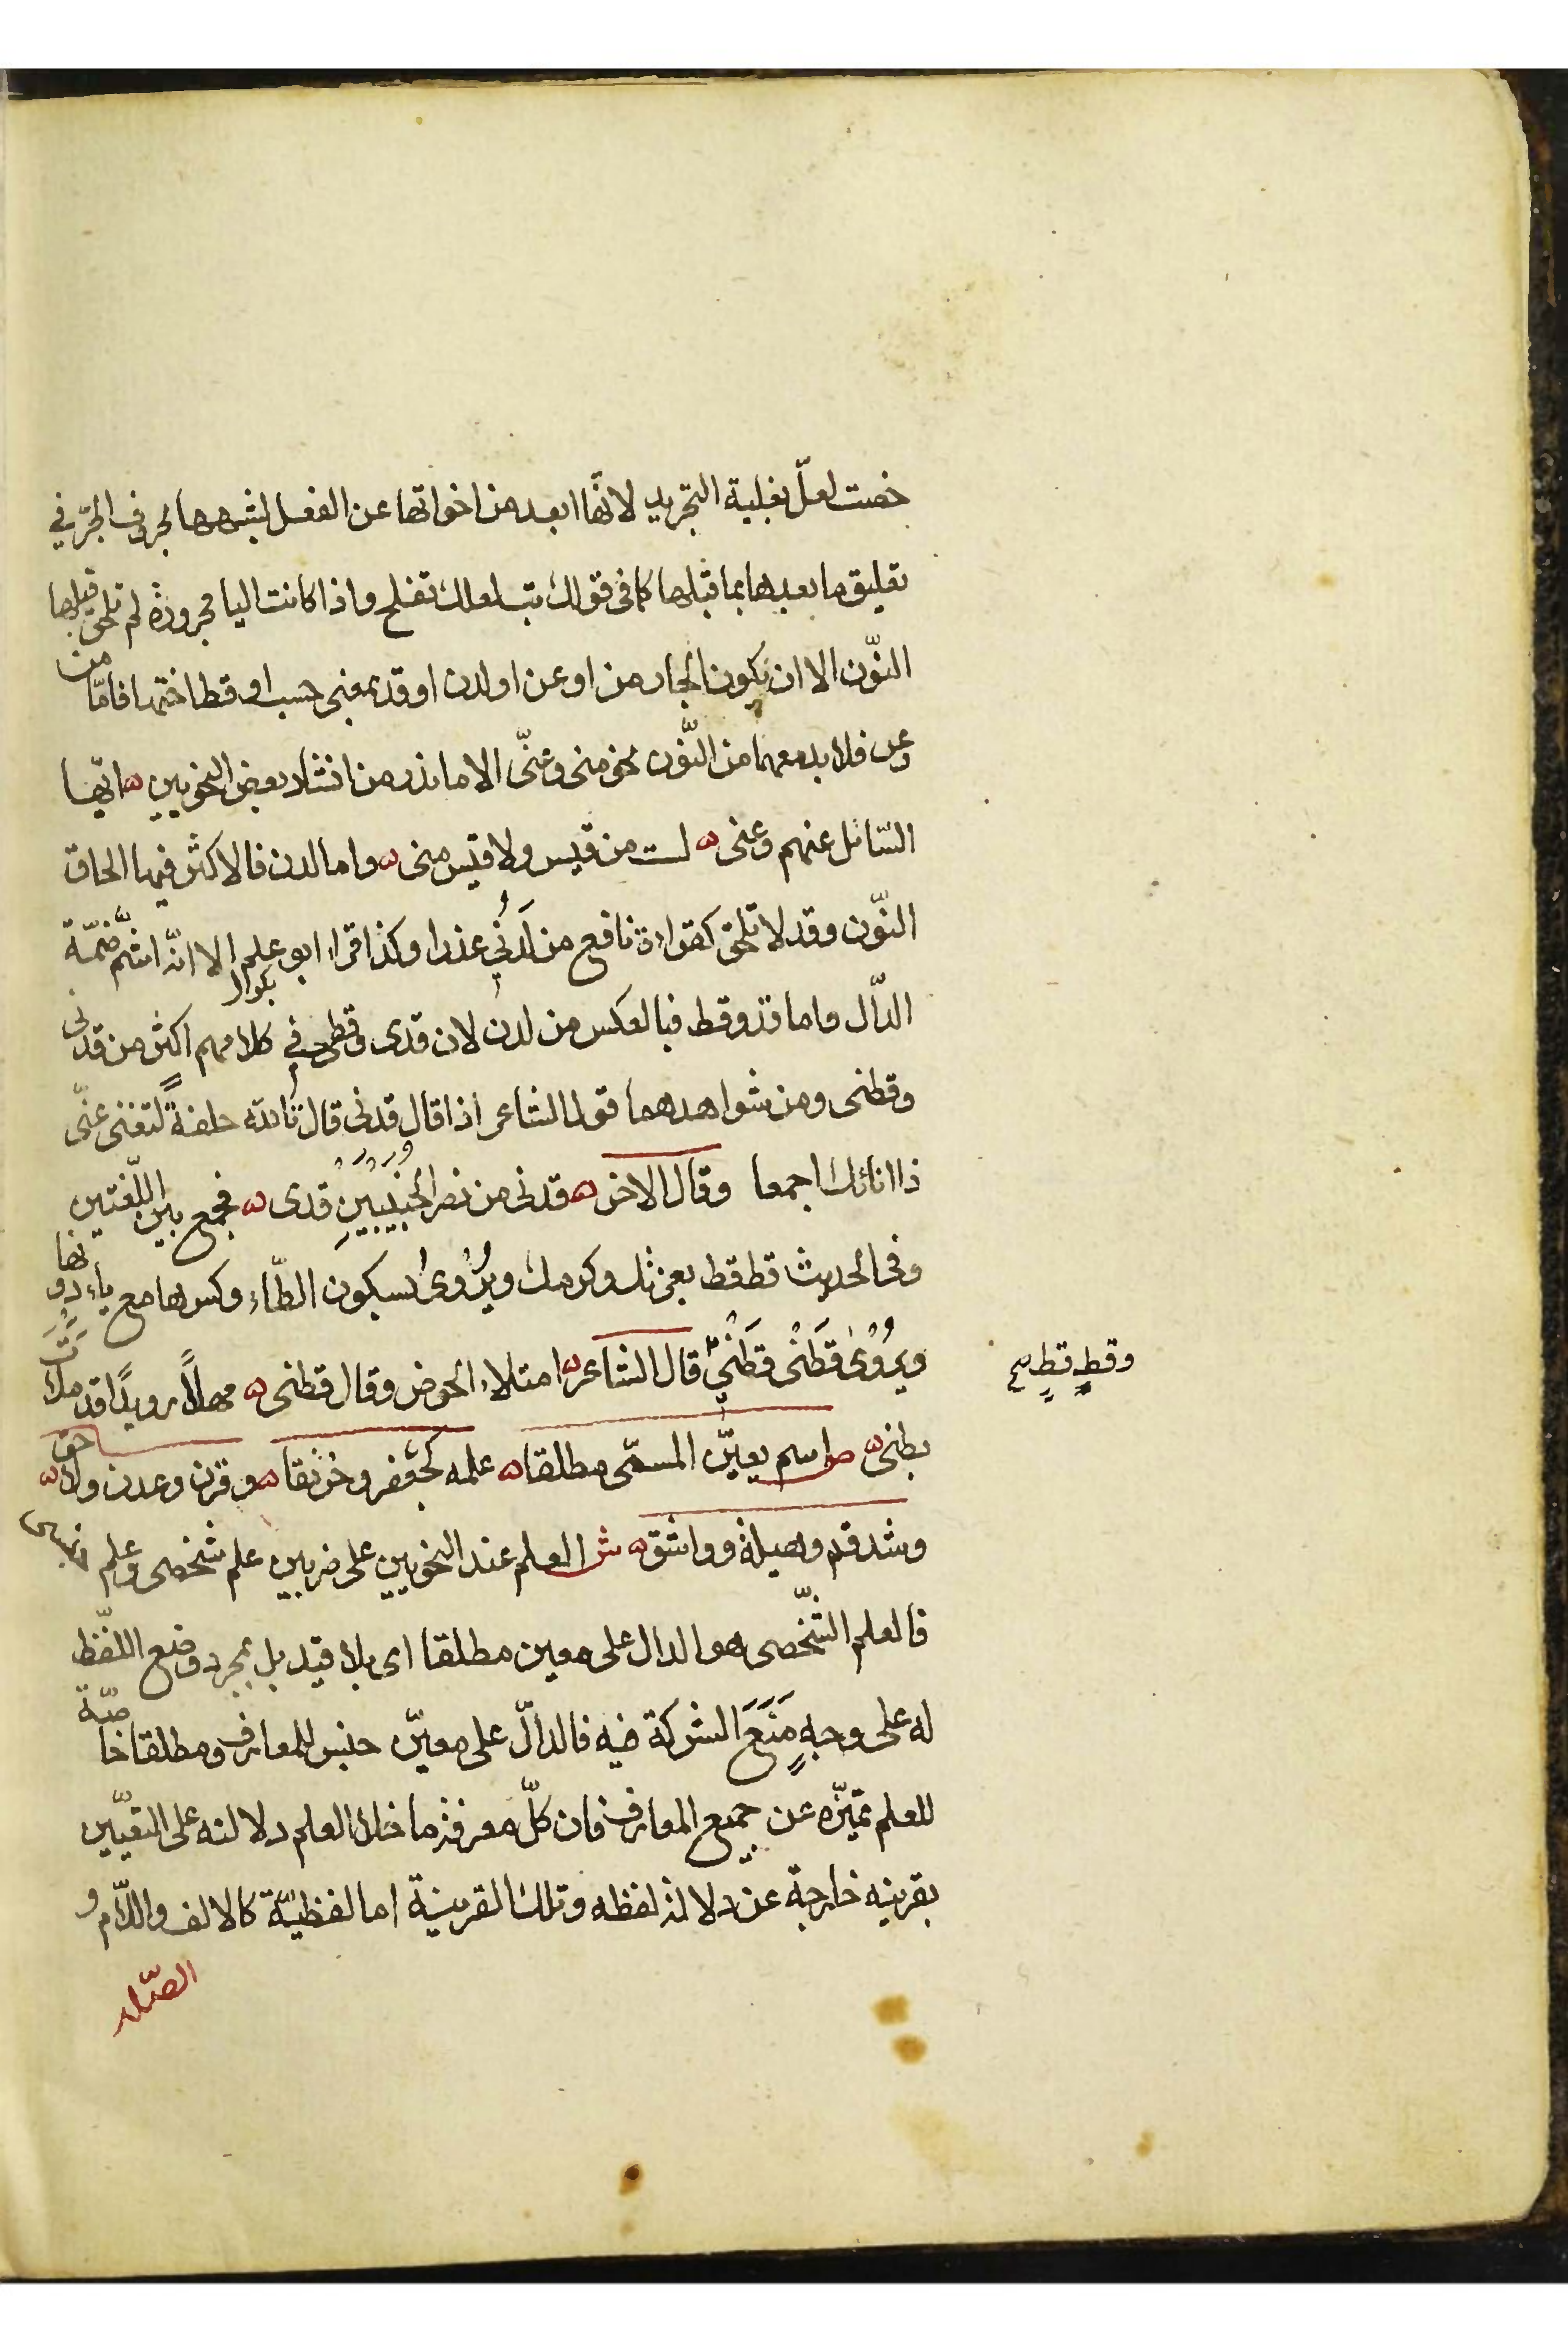 خصت لعلّ بغلبة التجريد لانّها ابعد من اخواتها عن الفعل لشبهها بحروف الجرّ في
تعليق ما بعدها بما قبلها كما في قولك تب لعلك تفلح واذا كانت اليا مجرورة لم تلحق قبلها
النّون الا ان يكون الجار من او عن او لدن او قد بمعنى حسب او قط اختها فامّا من
وعن فلا بد معهما من النّون نحو منى وعنّى الا ما ندر من انشاد بعض النحويين ايّها
السّائل عنهم وعنى لست من قيس ولا قيس منى واما لدن فالاكثر فيها الحاق
النّون وقد لا تلحق كقراءة نافع من لَدُنِي عذرا وكذا قراء ابو علم الا انّه اشمّ ضمّة
الدّال واما قد وقط فبالعكس من لدن لان قدى وقطى في كلامهم اكثر من قدنى
وقطنى ومن شواهدهما قول الشاعر اذا قال قدنى قال بالله حلفةً لتغنى عنّى
ذا انائك اجمعا وقال الاخر قدنى من نصر الخبيبين قدى فجمع بين اللّغتين
وفى الحديث قط قط بعزتك وكرمك ويُرْوى بسكون الطّاء وكسرها مع ياء دونها
ويُرْوىٰ قَطْنى قَطْنِى قال الشاعر امتلاء الحوض وقال قطنى مهلاً رويدًا قد ملأتَ
وقطٍ قطٍ صح
بطنى ص اسم يعيّن المسمّى مطلقا علمه كجعفر وخرنقا وقرن وعدن ولاحق
وشدقم وهيلة وواشق ش العلم عند النحويين على ضربين علم شخصى وعلم جنسى
فالعلم الشّخصى هو الدال على معين مطلقا اى بلا قيد بل بمجرد وضع اللفظ
له على وجهٍ مَنَعَ الشركة فيه فالدالّ على معيّن جنس للمعارف ومطلقا خاصّة
للعلم تميّزه عن جميع المعارف فان كلّ معرفة ما خلا العلم دلالته على التعيّين
بقرينه خارجة عن دلالة لفظه وتلك القرينة اما لفظيّة كالالف واللّام و
الصّله